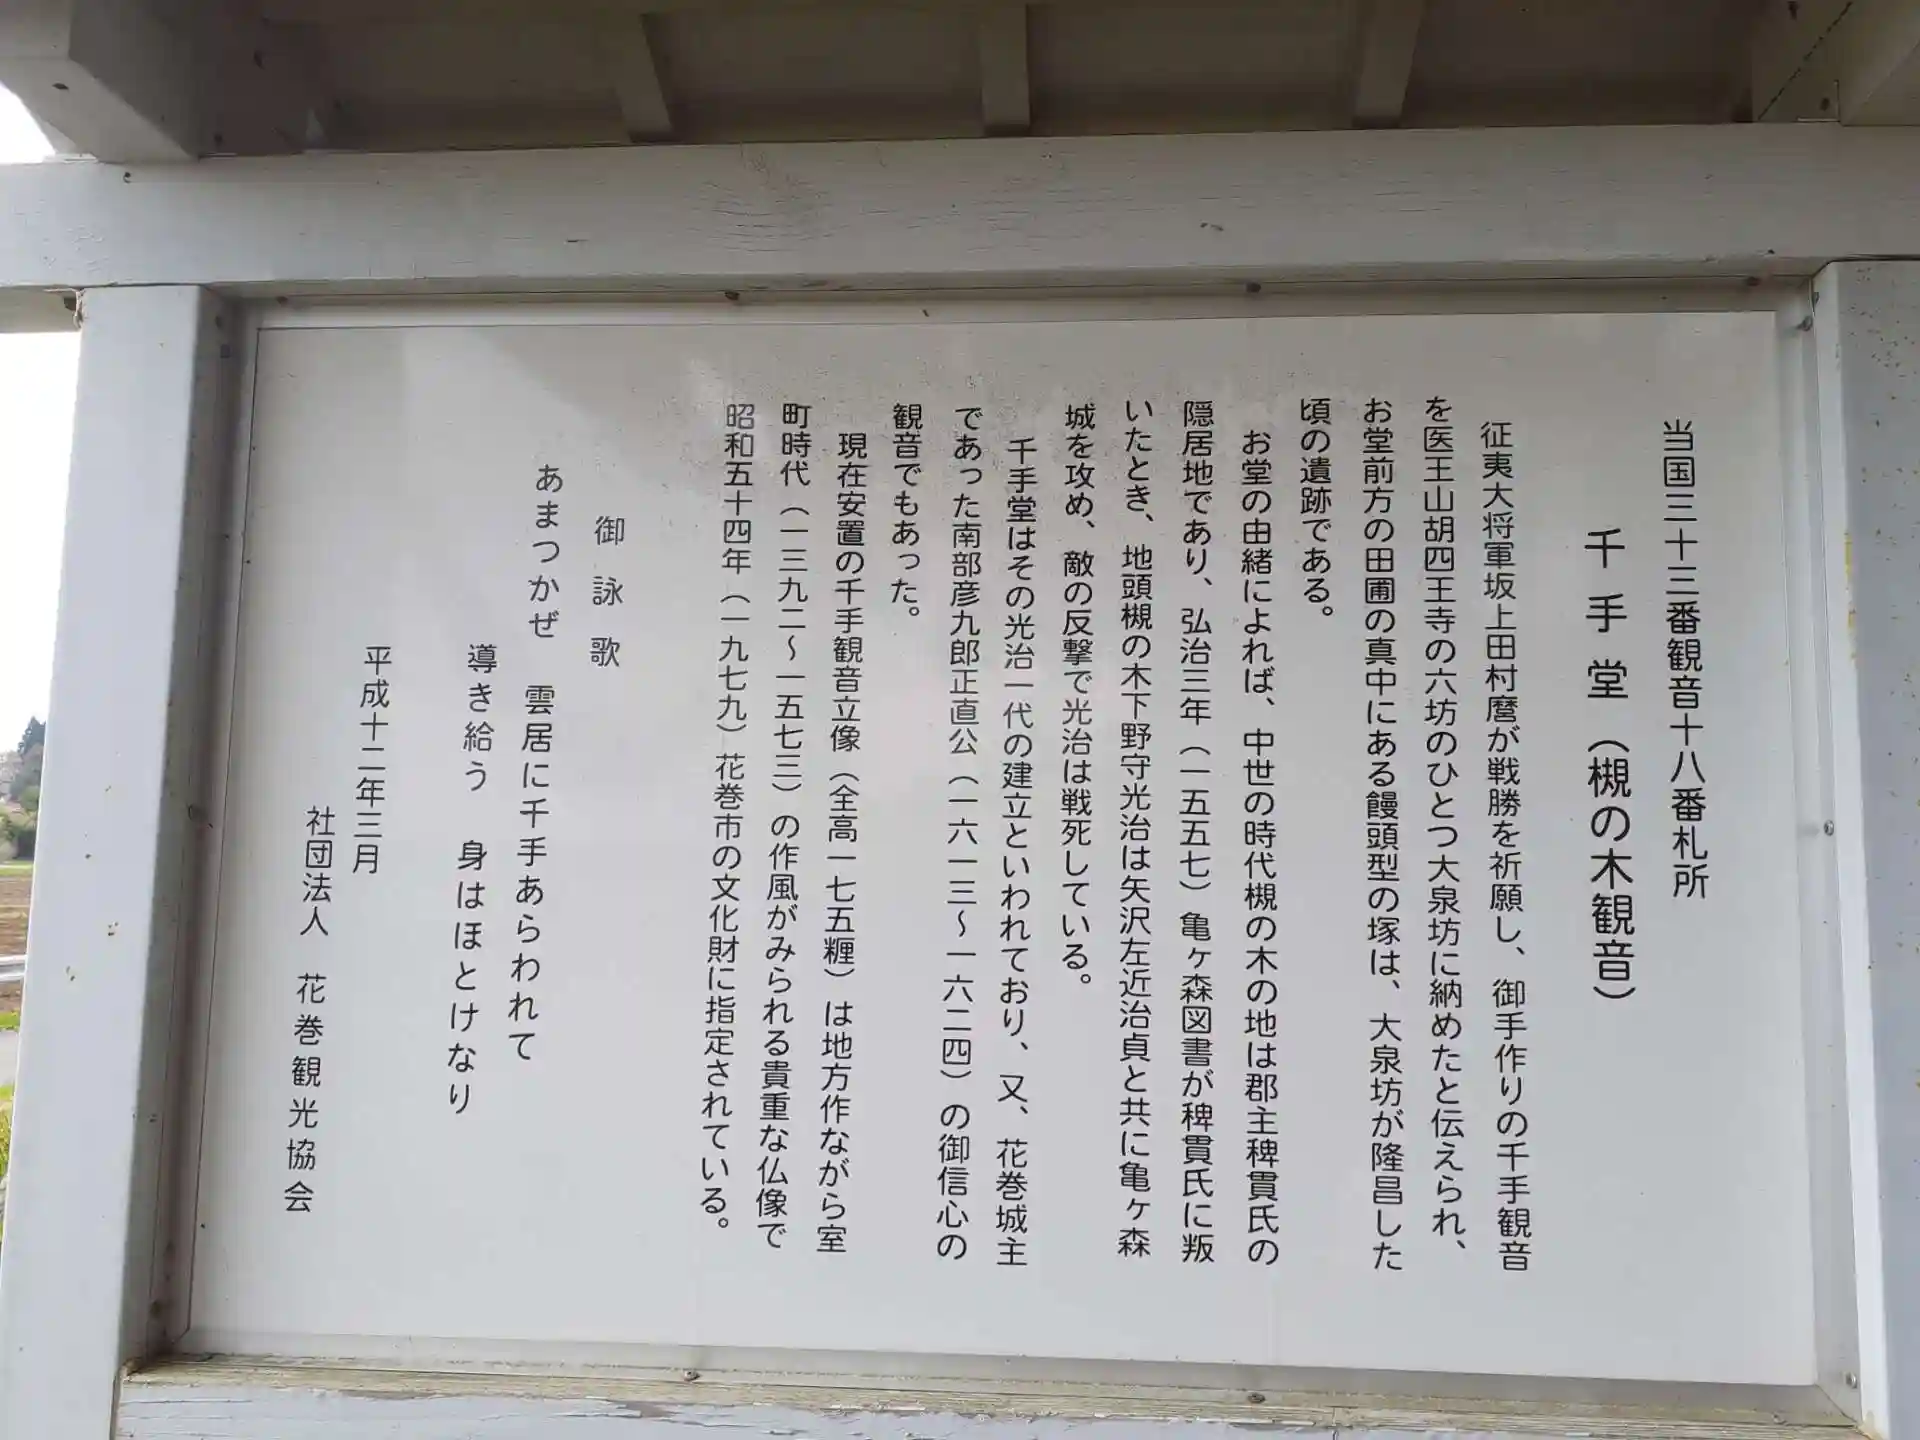 当国三十三番観音十八番札所
千手堂（槻の木観音）
征夷大将軍坂上田村麿が戦勝を祈願し、御手作りの千手観音
を医王山胡四王寺の六坊のひとつ大泉坊に納めたと伝えられ、
お堂前方の田圃の真中にある饅頭型の塚は、大泉坊が隆昌した
頃の遺跡である。
お堂の由緒によれば、中世の時代槻の木の地は郡主稗貫氏の
隠居地であり、弘治三年（一五五七）亀ヶ森図書が稗貫氏に叛
いたとき、地頭槻の木下野守光治は矢沢左近治貞と共に亀ヶ森
城を攻め、敵の反撃で光治は戦死している。
千手堂はその光治一代の建立といわれており、又、花巻城主
であった南部彦九郎正直公（一六一三～一六二四）の御信心の
観音でもあった。
現在安置の千手観音立像（全高一七五糎）は地方作ながら室
町時代（一三九二～一五七三）の作風がみられる貴重な仏像で
昭和五十四年（一九七九）花巻市の文化財に指定されている。
御詠歌
あまつかぜ　雲居に千手あらわれて
導き給う　身はほとけなり
平成十二年三月
社団法人　花巻観光協会